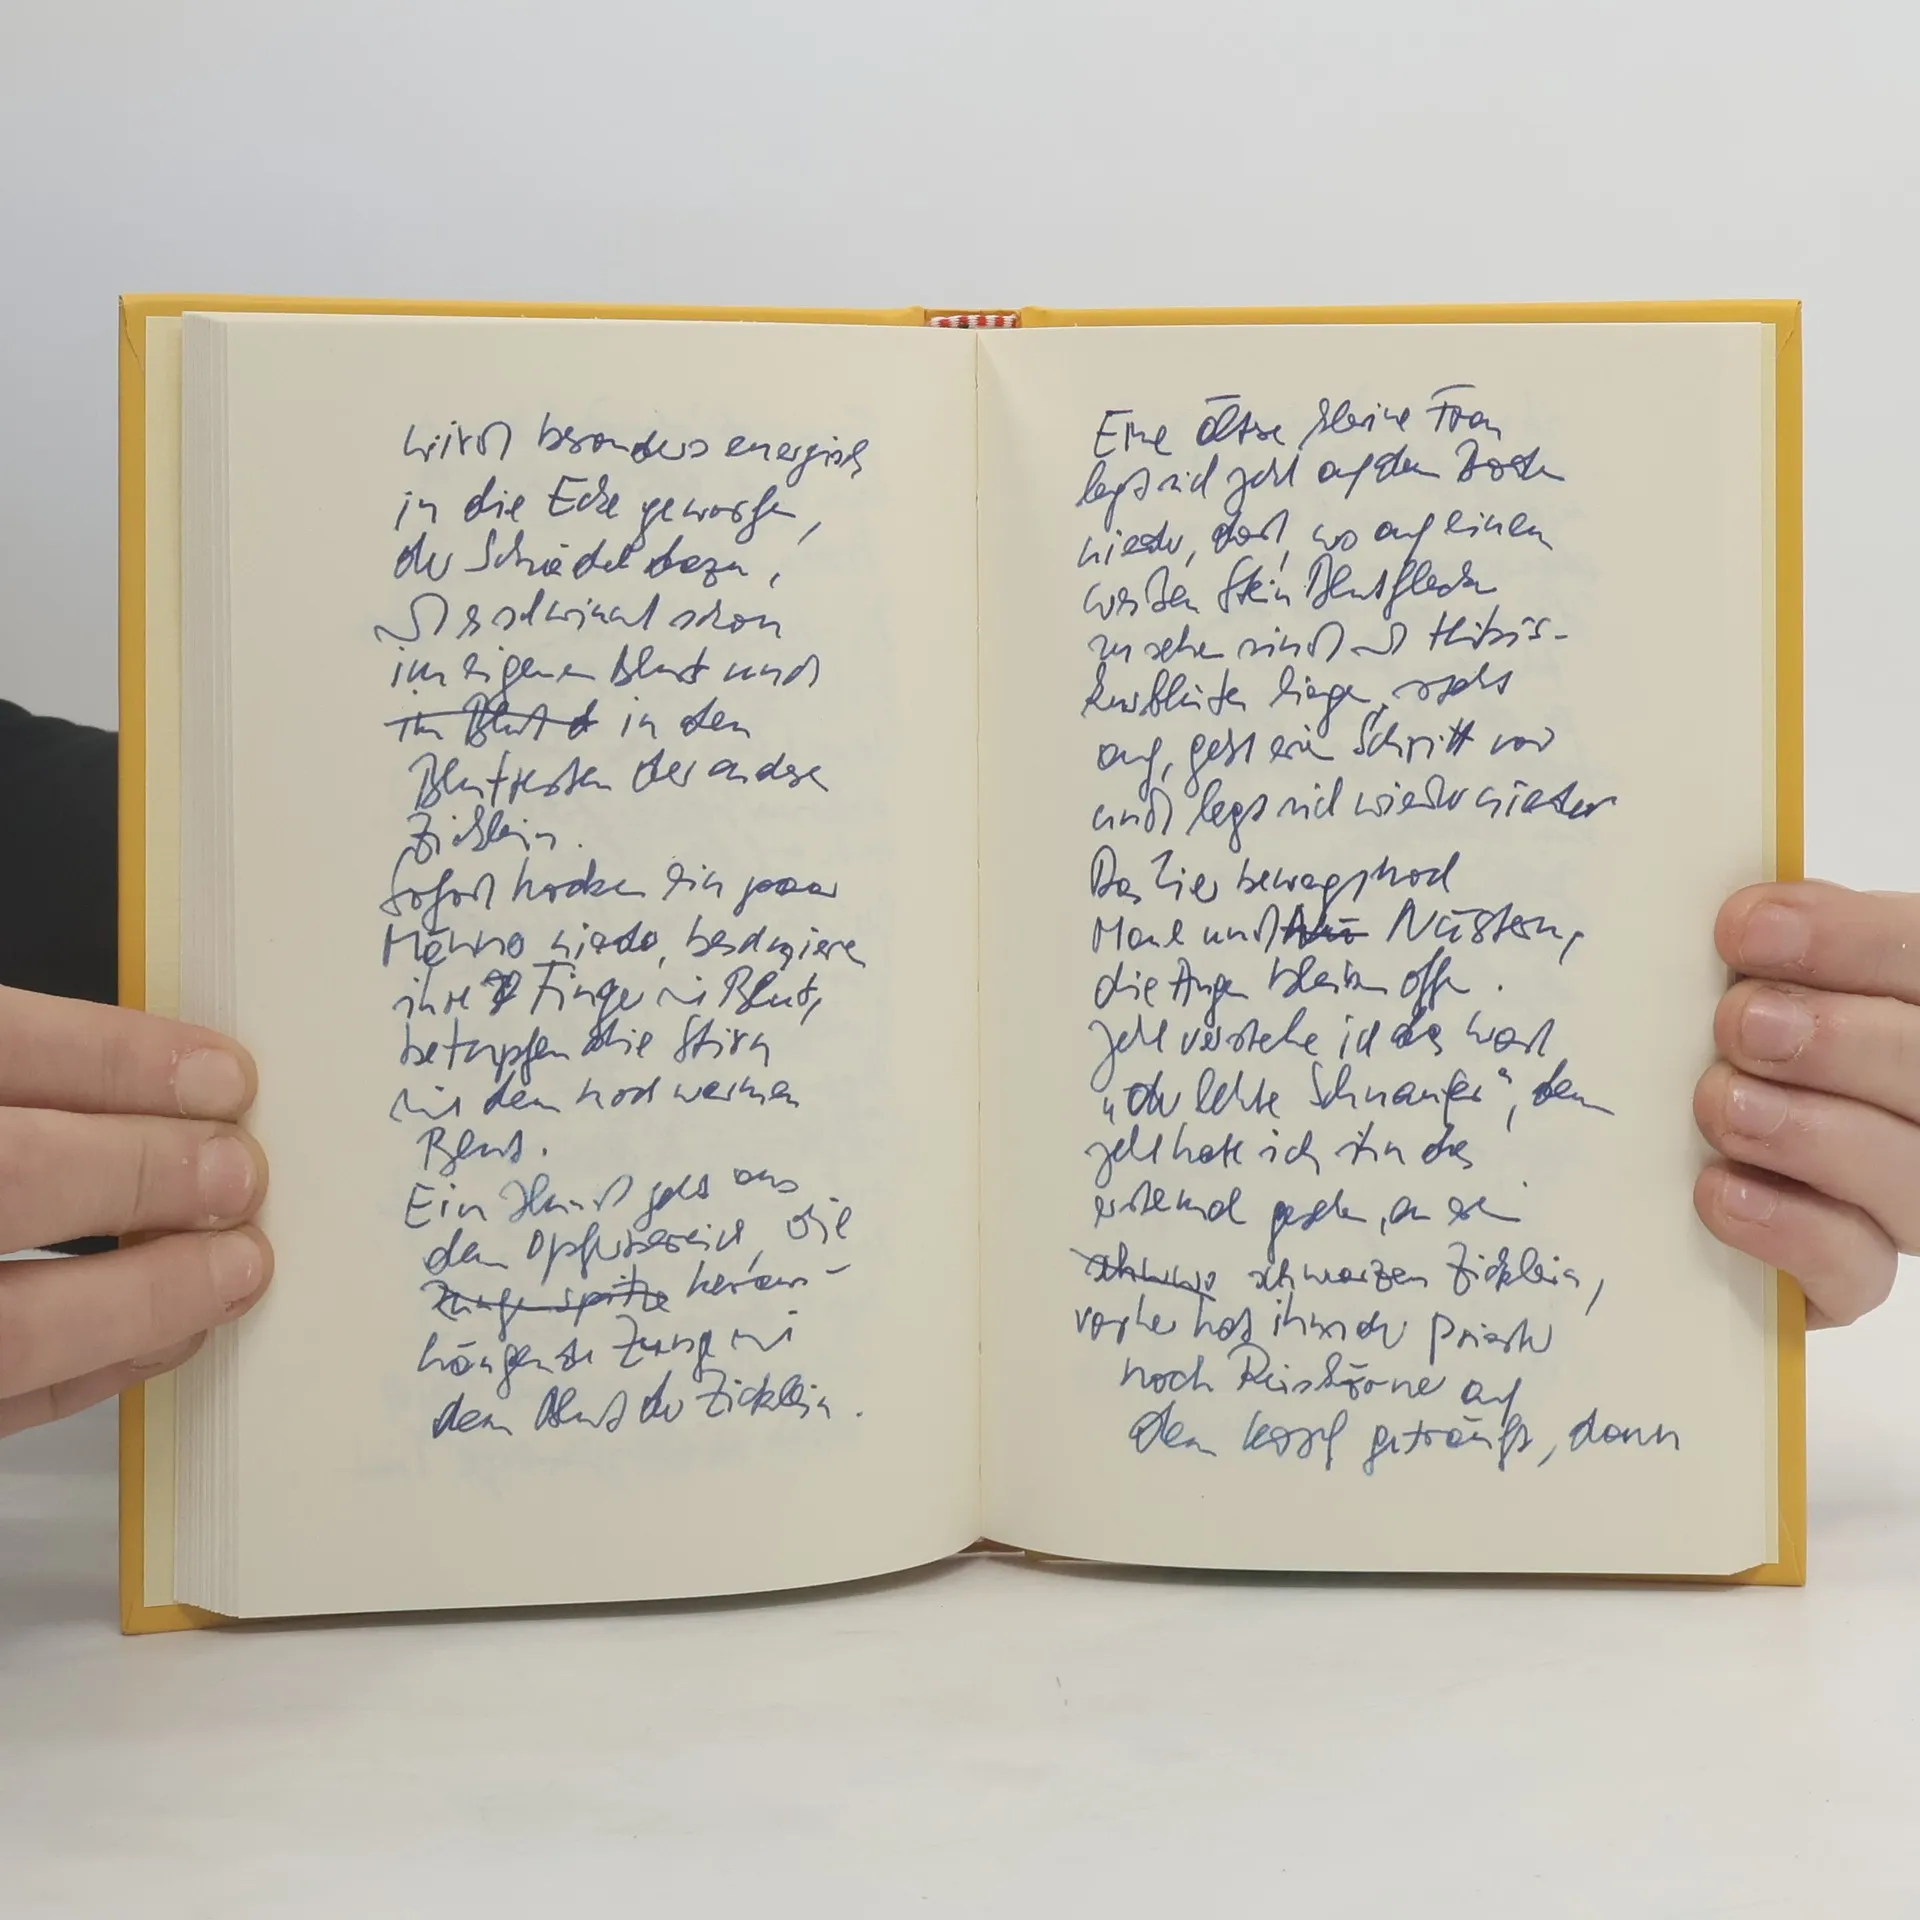 wird besonders energisch
in die Ecke geworfen,
der Schädel dazu,
es schwimmt schon
im eigenen Blut und
im Blut d in den
Blutresten der anderen
Zicklein.
Sofort hocken ein paar
Männer nieder, beschmieren
ihre Finger mit Blut,
betupfen die Stirn
mit dem noch warmen
Blut.
Ein Hund geht aus
dem Opferbereich, die
Zungenspitze heraus-
hängende Zunge mit
dem Blut der Zicklein.
Eine ältere kleine Frau
legt sich jetzt auf den Boden
nieder, dort, wo auf einem
weißen Stein Blutflecken
zu sehen sind und Hibis-
kusblüten liegen, steht
auf, geht ein Schritt vor
und legt sich wieder nieder
Das Tier bewegt noch
Maul und Nü Nüstern,
die Augen bleiben offen.
Jetzt verstehe ich das Wort
„der letzte Schnaufer", denn
jetzt hatte ich ihn das
erstemal gesehen, an ein
schwarzen Zicklein,
vorher hat ihm der Priester
noch Reiskörner auf
den Kopf geträufelt, dann